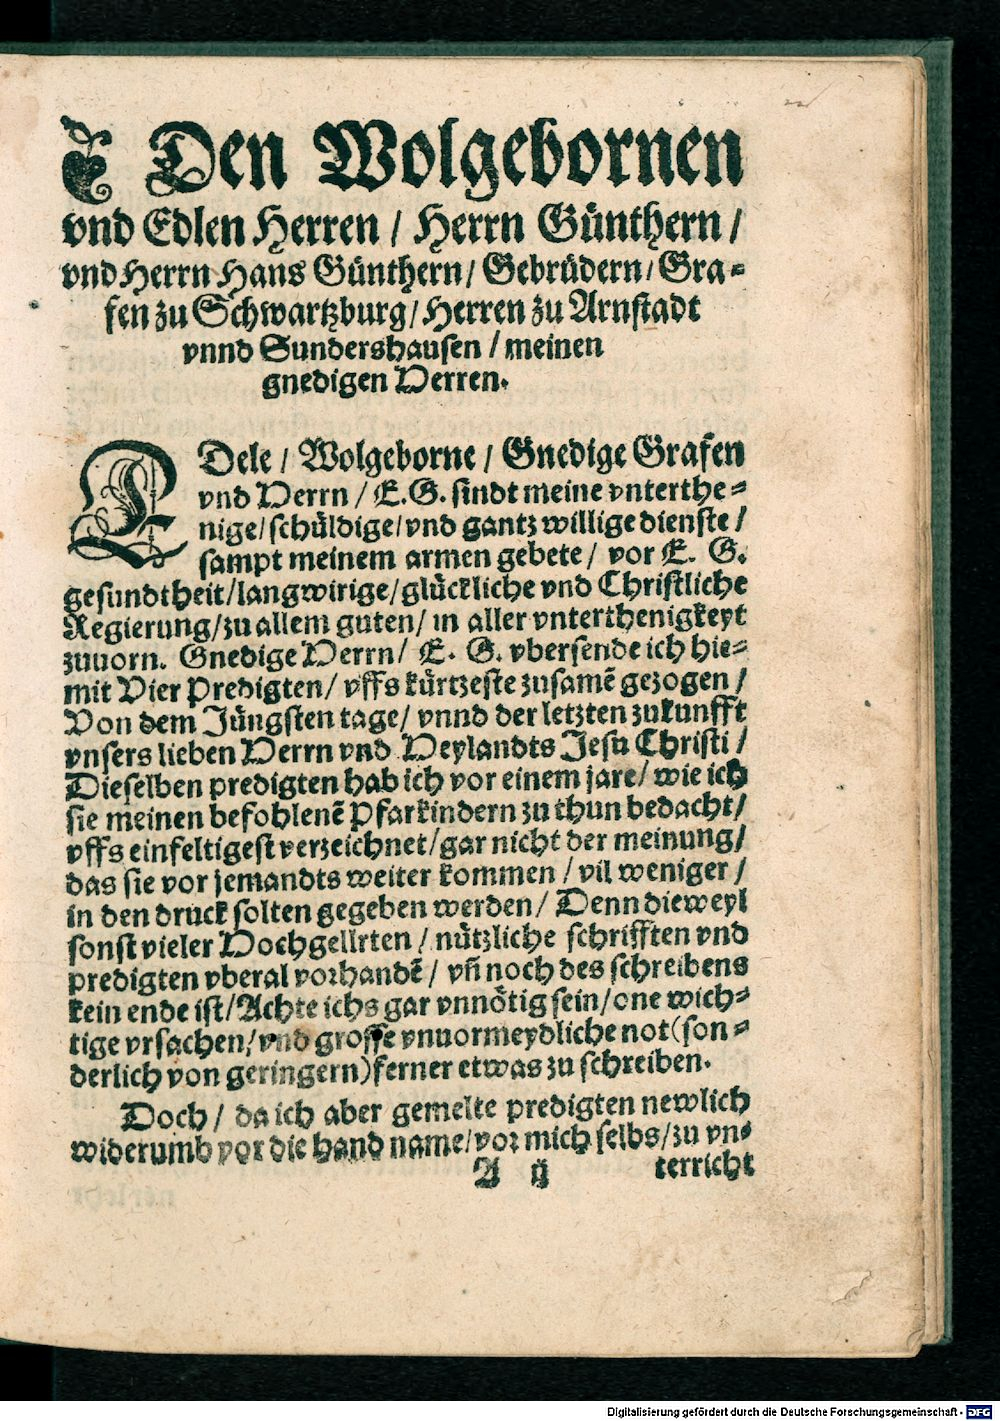 ❦ Den Wolgebornen
vnd Edlen Herren / Herrn Günthern /
vnd Herrn Hans Günthern / Gebrüdern / Gra-
fen zu Schwartzburg / Herren zu Arnstadt
vnnd Sundershausen / meinen
gnedigen Herren.
EDele / Wolgeborne / Gnedige Grafen
vnd Herrn / E.G. sindt meine vnterthe-
nige / schüldige / vnd gantz willige dienste /
sampt meinem armen gebete / vor E. G.
gesundtheit / langwirige / glückliche vnd Christliche
Regierung / zu allem guten / in aller vnterthenigkeyt
zuuorn. Gnedige Herrn / E. G. vbersende ich hie-
mit Vier Predigten / vffs kürtzeste zusamē gezogen /
Von dem Jüngsten tage / vnnd der letzten zukunfft
vnsers lieben Herrn vnd Heylandts Jesu Christi /
Dieselben predigten hab ich vor einem jare / wie ich
sie meinen befohlenē Pfarkindern zu thun bedacht /
vffs einfeltigest verzeichnet / gar nicht der meinung /
das sie vor jemandts weiter kommen / vil weniger /
in den druck solten gegeben werden / Denn dieweyl
sonst vieler Hochgellrten / nützliche schrifften vnd
predigten vberal vorhandē / vñ noch des schreibens
kein ende ist / Achte ichs gar vnnötig sein / one wich-
tige vrsachen / vnd grosse vnuormeydliche not (son-
derlich von geringern) ferner etwas zu schreiben.
Doch / da ich aber gemelte predigten newlich
widerumb vor die hand name / vor mich selbs / zu vn-
A ij terricht
Digitalisierung gefördert durch die Deutsche Forschungsgemeinschaft - DFG